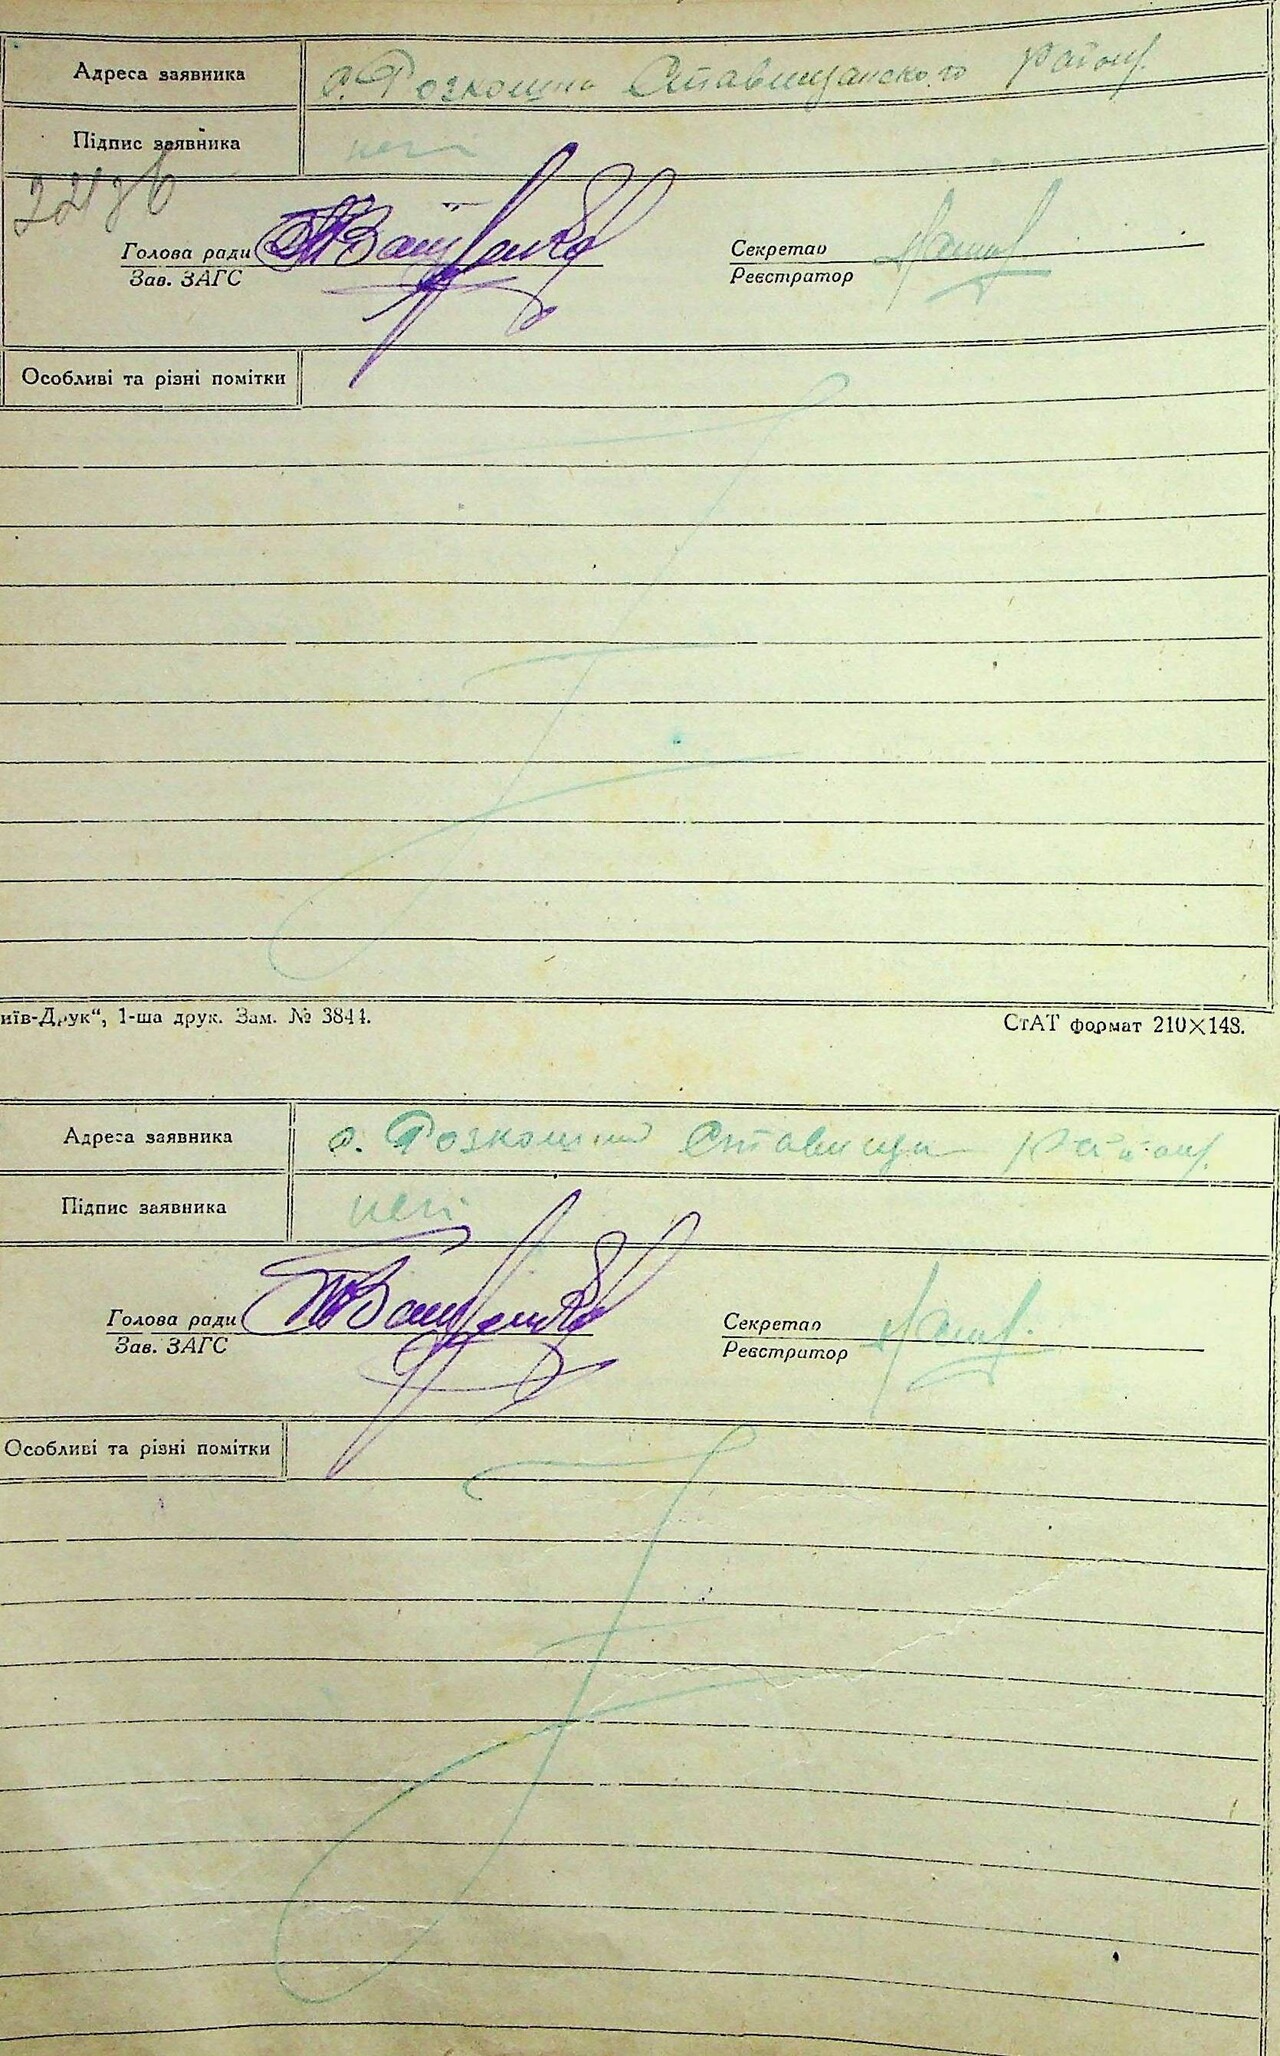 Адреса заявника с. Розкошна Ставищанского району
Підпис заявника неп
Голова ради
Зав. ЗАГС
Секретар
Реєстратор
Особливі та різні помітки
иїв-Друк“, 1-ша друк. Зам. № 3844.
СтАТ формат 210×148.
Адреса заявника с. Розкошна Ставищан району
Підпис заявника неп
Голова ради
Зав. ЗАГС
Секретар
Реєстратор
Особливі та різні помітки